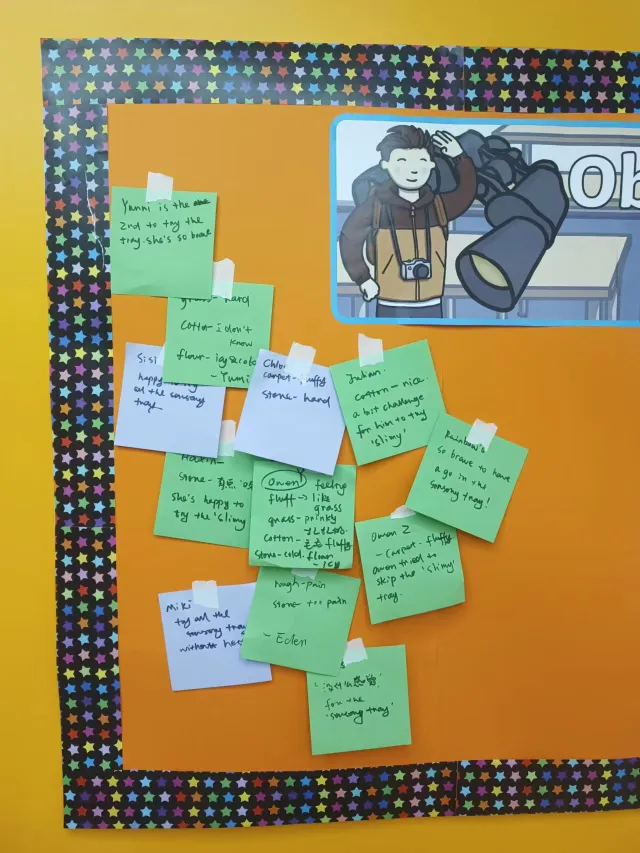 Ob
Yumi is the
2nd to try the
tray. she's so brave
hard
Cotton - I don't
know
flour -
- Yumi
Sisi
happy
all the sensory
tray
carpet - fluffy
stone - hard
Julian.
cotton - nice.
a bit challenge
for him to try
'slimy'
Rainbow's
so brave to have
a go in the
sensory tray!
stone -
she's happy to
try the 'slimy
Owen feeling
fluff → like
grass
grass -
cotton - fluffy
stone - cold. flour
Owen Z
- carpet - fluffy
owen tried to
skip the 'slimy'
tray.
Miki
try all the
sensory tray
without
stone - pain
- Eden
for the
'sensory tray'